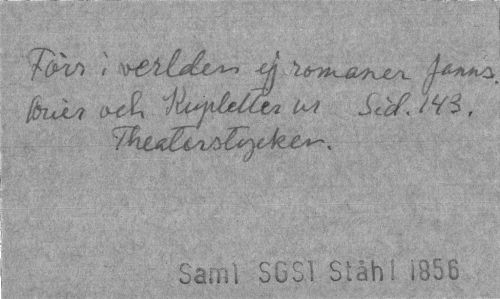 Förr i verlden ej romaner fanns.
Arier och Kupletter ur Sid. 143.
Theaterstycken.
Saml SGS1 Ståhl 1856